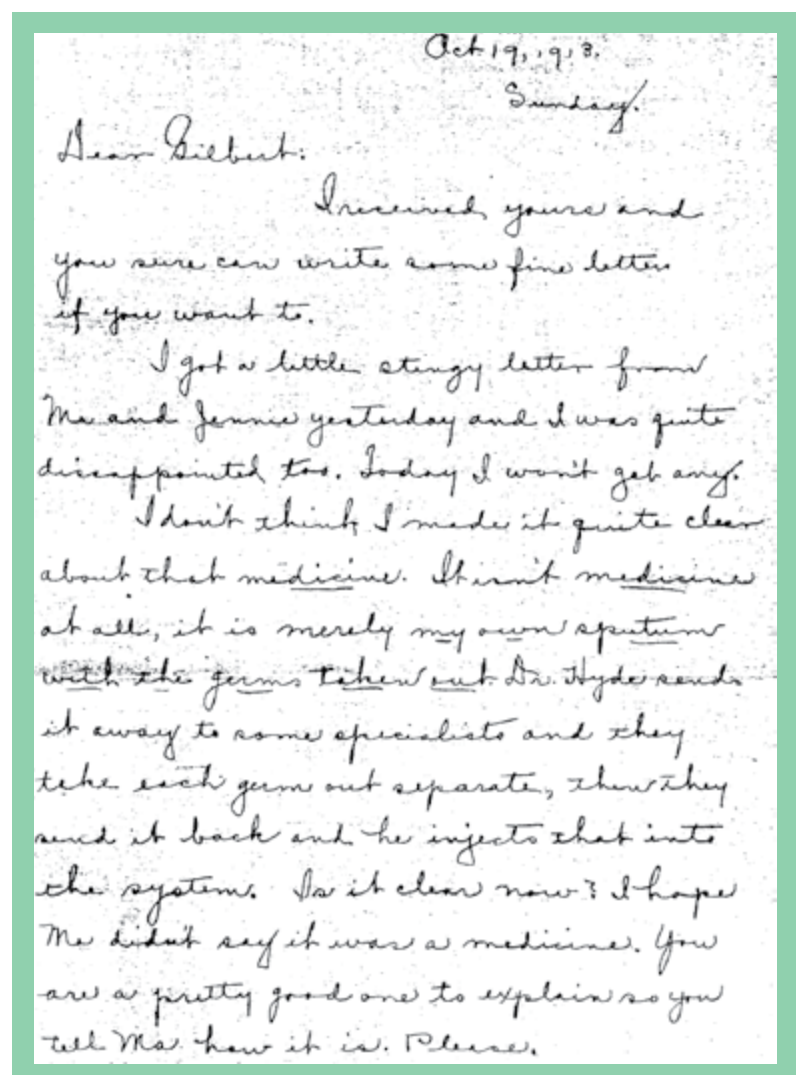 Oct 19, 1913.
Sunday.
Dear Gilbert:
I received yours and
you sure can write some fine letters
if you want to.
I got a little stingy letter from
Ma and Jennie yesterday and I was quite
disappointed too. Today I won't get any.
I don't think I made it quite clear
about that medicine. It isn't medicine
at all, it is merely my own sputum
with the germs taken out. Dr. Hyde sends
it away to some specialists and they
take each germ out separate, then they
send it back and he injects that into
the system. Is it clear now? I hope
Ma didn't say it was a medicine. You
are a pretty good one to explain so you
tell Ma how it is. Please.